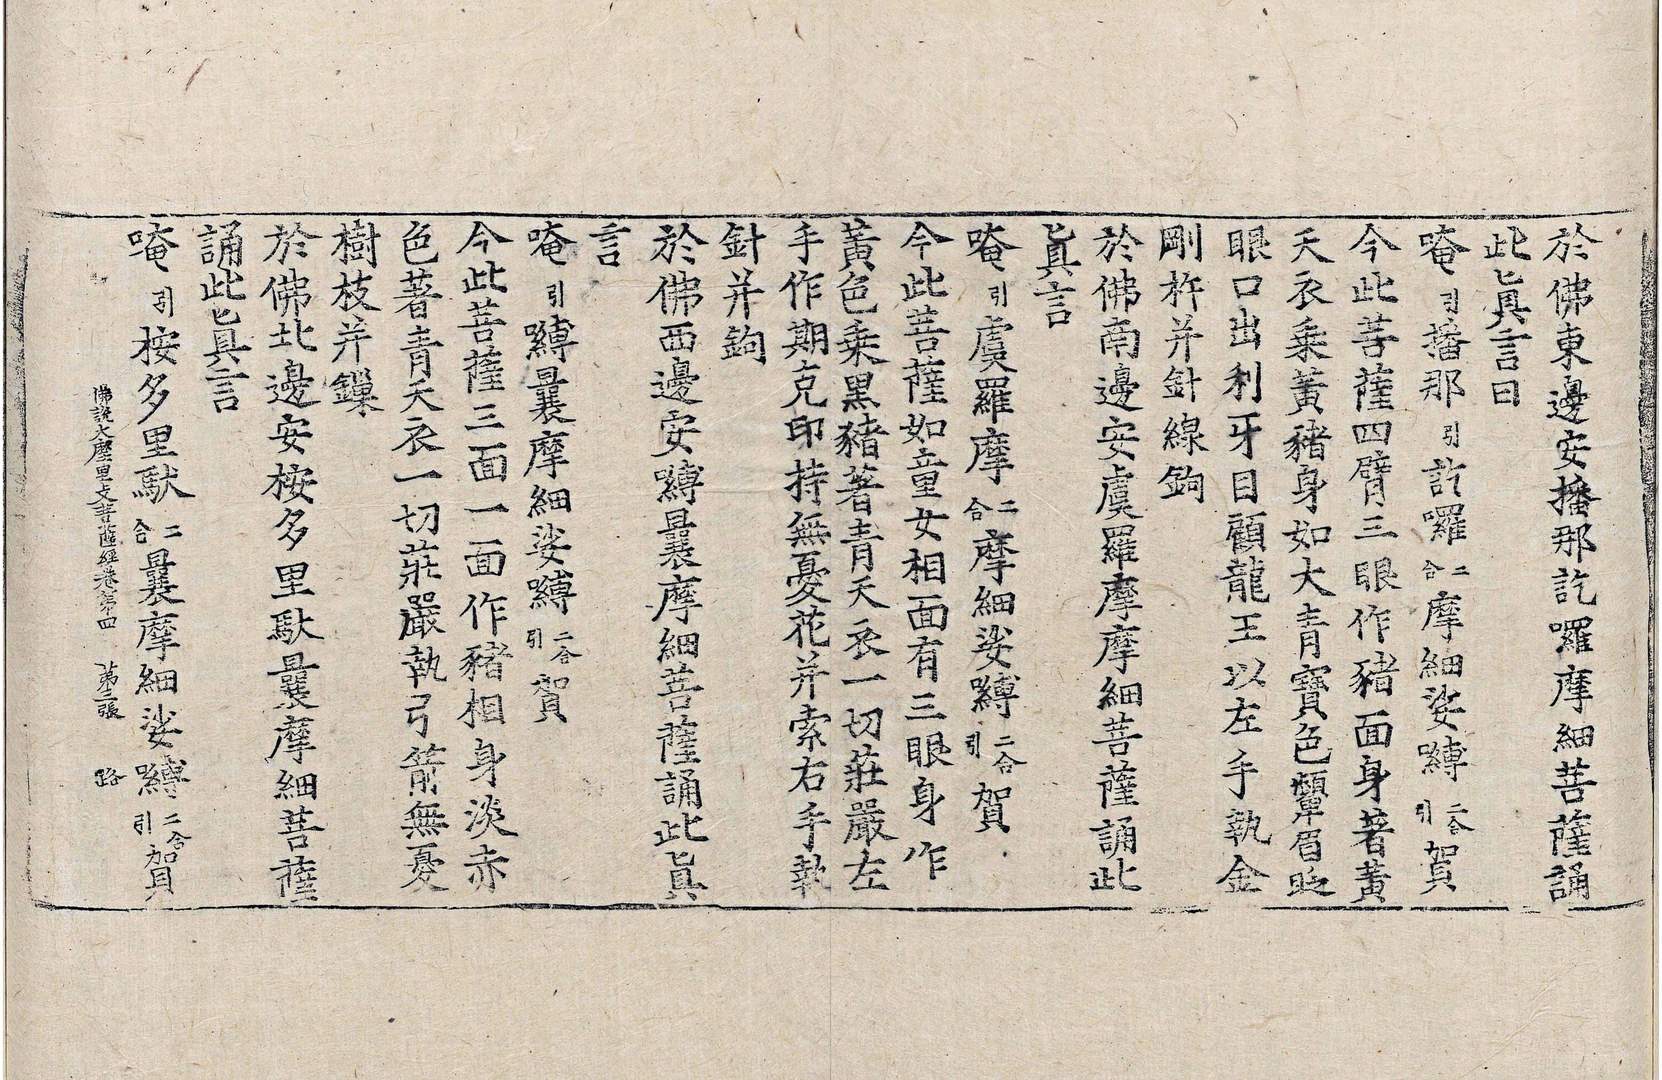 於佛東邊安播那訖囉摩細菩薩誦
此真言曰
唵引播那引訖囉二合摩細娑嚩二合引賀
今此菩薩四臂三眼作豬面身著黃
天衣乘黃豬身如大青寶色顰眉眨
眼口出利牙目顧龍王以左手執金
剛杵并針線鉤
於佛南邊安虞羅摩摩細菩薩誦此
真言
唵引虞羅摩二合摩細娑嚩二合引賀
今此菩薩如童女相面有三眼身作
黃色乘黑豬著青天衣一切莊嚴左
手作期克印持無憂花并索右手執
針并鉤
於佛西邊安嚩曩摩細菩薩誦此真
言
唵引嚩曩摩細娑嚩二合引賀
今此菩薩三面一面作豬相身淡赤
色著青天衣一切莊嚴執弓箭無憂
樹枝并鏁
於佛北邊安桉多里馱曩摩細菩薩
誦此真言
唵引桉多里馱二合曩摩細娑嚩二合引賀
佛說大摩里支菩薩經卷第四 第 張 路